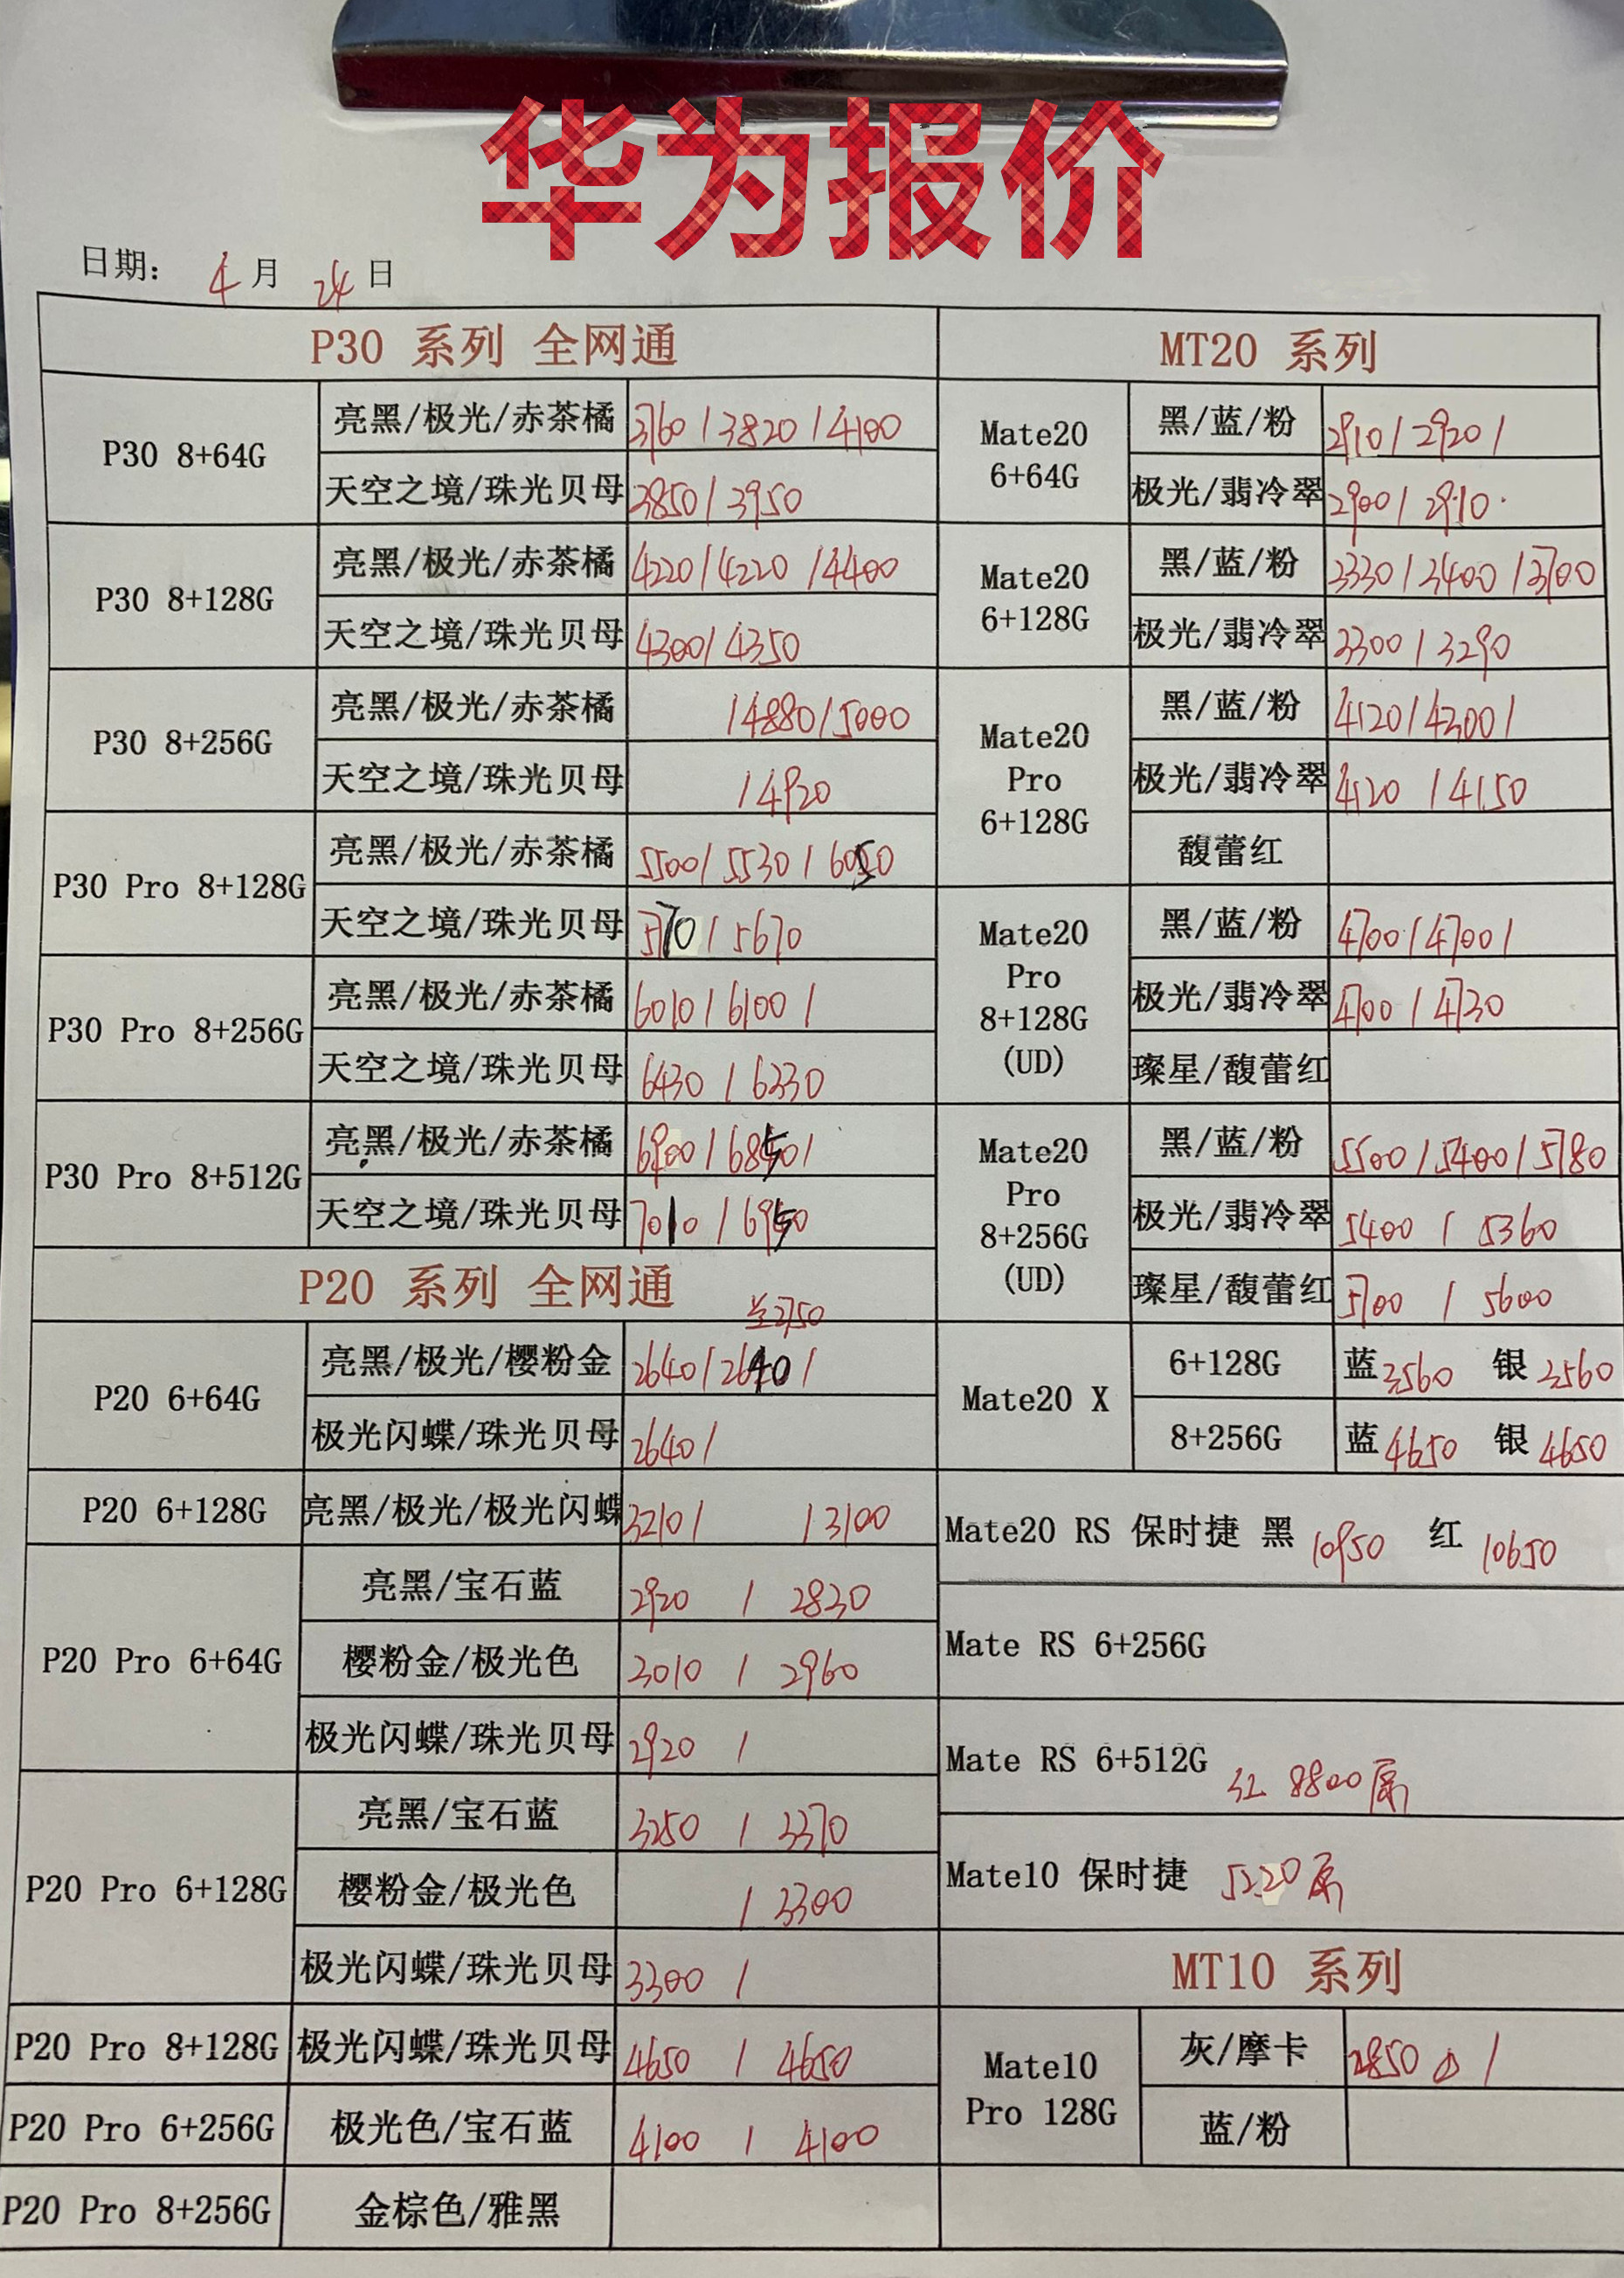 华为报价
日期: 4 月 24 日
P30 系列 全网通
P30 8+64G
亮黑/极光/赤茶橘 3760 / 3820 / 4100
天空之境/珠光贝母 3850 / 3950
P30 8+128G
亮黑/极光/赤茶橘 4220 / 4220 / 4400
天空之境/珠光贝母 4300 / 4350
P30 8+256G
亮黑/极光/赤茶橘 / 4880 / 5000
天空之境/珠光贝母 / 4920
P30 Pro 8+128G
亮黑/极光/赤茶橘 5500 / 5530 / 6050
天空之境/珠光贝母 / 5670
P30 Pro 8+256G
亮黑/极光/赤茶橘 6010 / 6100 /
天空之境/珠光贝母 6430 / 6330
P30 Pro 8+512G
亮黑/极光/赤茶橘 6900 / 6850 /
天空之境/珠光贝母 7010 / 6950
P20 系列 全网通
2750
P20 6+64G
亮黑/极光/樱粉金 2640 / 2640 /
极光闪蝶/珠光贝母 2640 /
P20 6+128G
亮黑/极光/极光闪蝶 3210 / / 3100
P20 Pro 6+64G
亮黑/宝石蓝 2920 / 2830
樱粉金/极光色 3010 / 2960
极光闪蝶/珠光贝母 2920 /
P20 Pro 6+128G
亮黑/宝石蓝 3250 / 3370
樱粉金/极光色 / 3300
极光闪蝶/珠光贝母 3300 /
P20 Pro 8+128G 极光闪蝶/珠光贝母 4650 / 4650
P20 Pro 6+256G 极光色/宝石蓝 4100 / 4100
P20 Pro 8+256G 金棕色/雅黑
MT20 系列
Mate20
6+64G
黑/蓝/粉 2910 / 2920 /
极光/翡冷翠 2900 / 2910
Mate20
6+128G
黑/蓝/粉 3330 / 3400 / 3700
极光/翡冷翠 3300 / 3290
Mate20
Pro
6+128G
黑/蓝/粉 4120 / 4200 /
极光/翡冷翠 4120 / 4150
馥蕾红
Mate20
Pro
8+128G
(UD)
黑/蓝/粉 4700 / 4700 /
极光/翡冷翠 4700 / 4730
璨星/馥蕾红
Mate20
Pro
8+256G
(UD)
黑/蓝/粉 5500 / 5400 / 5780
极光/翡冷翠 5400 / 5360
璨星/馥蕾红 5700 / 5600
Mate20 X
6+128G 蓝 3560 银 3560
8+256G 蓝 4650 银 4650
Mate20 RS 保时捷 黑 10950 红 10650
Mate RS 6+256G
Mate RS 6+512G 红 8800
Mate10 保时捷 5220
MT10 系列
Mate10
Pro 128G
灰/摩卡 2850 /
蓝/粉